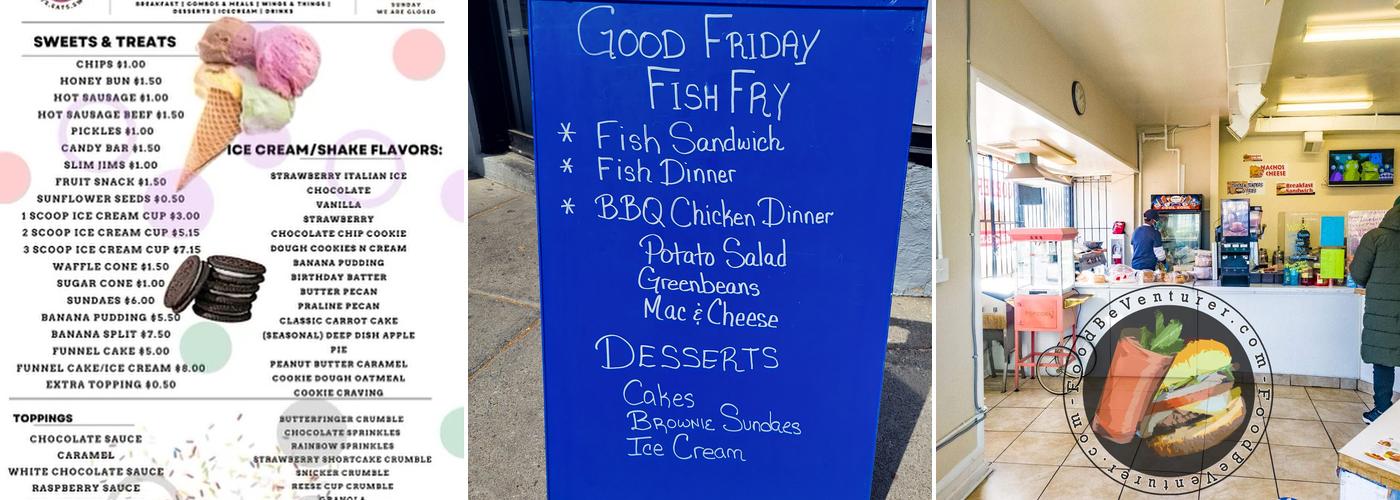 BREAKFAST | COMBOS & MEALS | WINGS & THINGS |
DESSERTS | ICECREAM | DRINKS
SUNDAY
WE ARE CLOSED
SWEETS & TREATS
CHIPS $1.00
HONEY BUN $1.50
HOT SAUSAGE $1.00
HOT SAUSAGE BEEF $1.50
PICKLES $1.00
CANDY BAR $1.50
SLIM JIMS $1.00
FRUIT SNACK $1.50
SUNFLOWER SEEDS $0.50
1 SCOOP ICE CREAM CUP $3.00
2 SCOOP ICE CREAM CUP $5.15
3 SCOOP ICE CREAM CUP $7.15
WAFFLE CONE $1.50
SUGAR CONE $1.00
SUNDAES $6.00
BANANA PUDDING $5.50
BANANA SPLIT $7.50
FUNNEL CAKE $5.00
FUNNEL CAKE/ICE CREAM $8.00
EXTRA TOPPING $0.50
ICE CREAM/SHAKE FLAVORS:
STRAWBERRY ITALIAN ICE
CHOCOLATE
VANILLA
STRAWBERRY
CHOCOLATE CHIP COOKIE
DOUGH COOKIES N CREAM
BANANA PUDDING
BIRTHDAY BATTER
BUTTER PECAN
PRALINE PECAN
CLASSIC CARROT CAKE
(SEASONAL) DEEP DISH APPLE
PIE
PEANUT BUTTER CARAMEL
COOKIE DOUGH OATMEAL
COOKIE CRAVING
TOPPINGS
CHOCOLATE SAUCE
CARAMEL
WHITE CHOCOLATE SAUCE
RASPBERRY SAUCE
BUTTERFINGER CRUMBLE
CHOCOLATE SPRINKLES
RAINBOW SPRINKLES
STRAWBERRY SHORTCAKE CRUMBLE
SNICKER CRUMBLE
REESE CUP CRUMBLE
GRANOLA
GOOD FRIDAY
FISH FRY
* Fish Sandwich
* Fish Dinner
* BBQ Chicken Dinner
Potato Salad
Greenbeans
Mac & Cheese
DESSERTS
Cakes
BROWNIE Sundaes
Ice Cream
NACHOS
CHEESE
Breakfast
Sandwich
FoodBeVenturer.com-FoodBeVenturer.com-